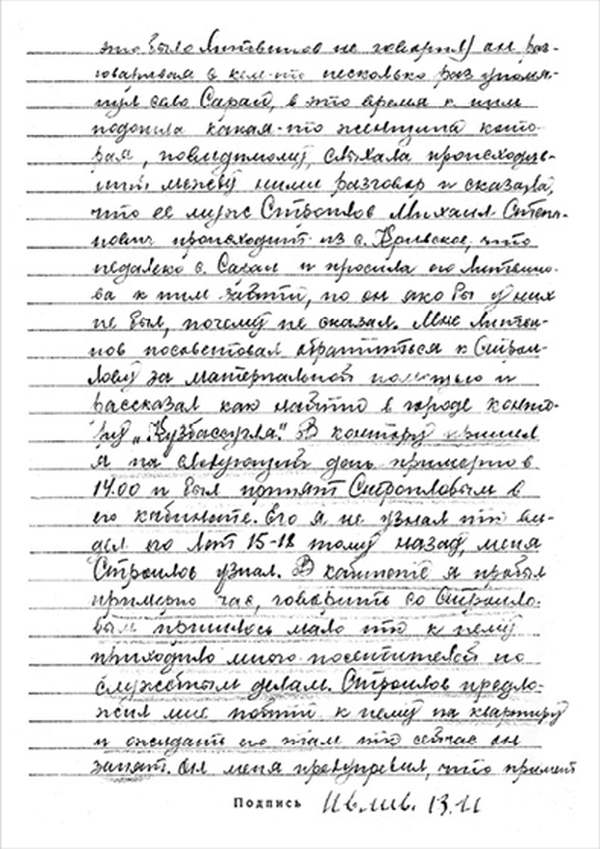 это было Литвинов не говорил) он раз-
говаривая с кем-то несколько раз упомя-
нул село Сараи, в это время к ним
подошла какая-то женщина кото-
рая, повидимому, слыхала происходив-
ший между ними разговор и сказала,
что ее муж Строилов Михаил Степа-
нович происходит из с. Кривское, что
недалеко с. Сараи и просила его Литвино-
ва к ним зайти, но он яко бы у них
не был, почему не сказал. Мне Литви-
нов посоветовал обратиться к Строи-
лову за материальной помощью и
рассказал как найти в городе конто-
ру "Кузбассугля". В контору пришел
я на следующий день примерно в
14.00 и был принят Строиловым в
его кабинете. Его я не узнал т.к. ви-
дел его лет 15-18 тому назад, меня
Строилов узнал. В кабинете я пробыл
примерно час, говорить со Строило-
вым пришлось мало т.к. к нему
приходило много посетителей по
служебным делам. Строилов предло-
жил мне пойти к нему на квартиру
и ожидать его там т.к. сейчас он
занят. Он меня предупредил, что примет
Подпись 13.11